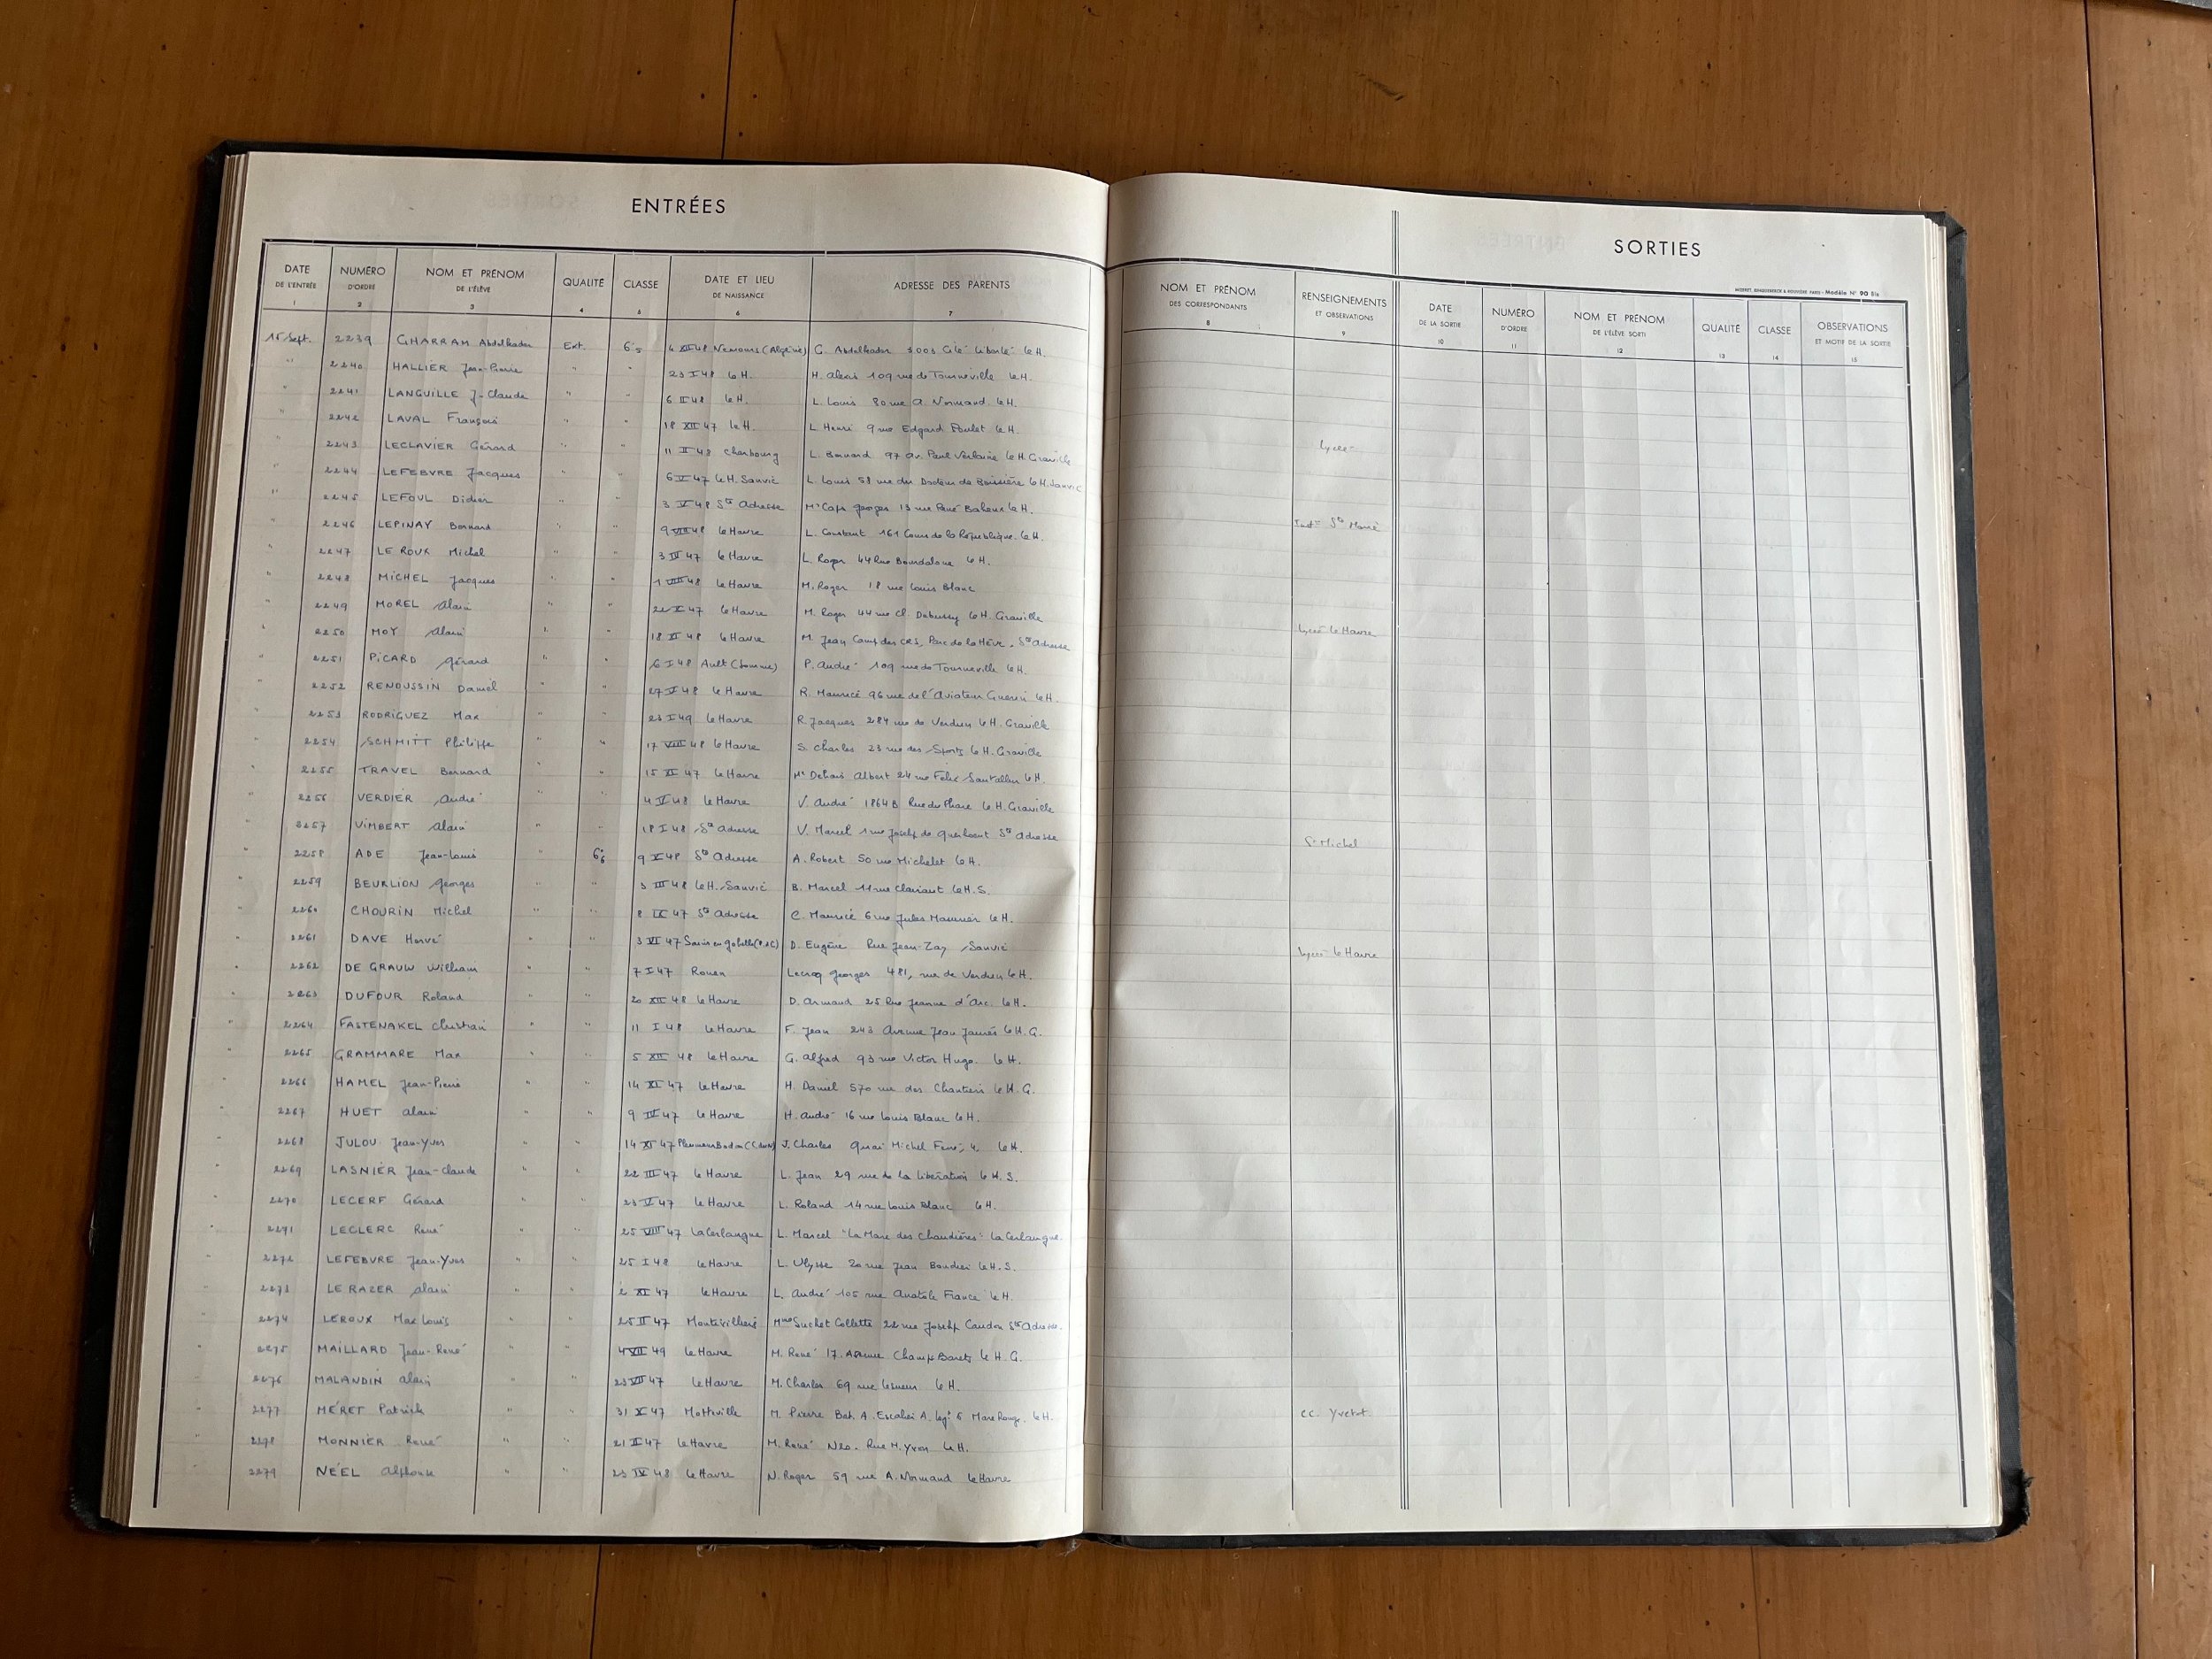 ENTRÉES
DATE DE L'ENTRÉE 1
NUMÉRO D'ORDRE 2
NOM ET PRÉNOM DE L'ÉLÈVE 3
QUALITÉ 4
CLASSE 5
DATE ET LIEU DE NAISSANCE 6
ADRESSE DES PARENTS 7
15 Sept. 2239 GHARRAM Abdelkader Ext. 6e5 4 XII 48 Nemours (Algérie) G. Abdelkader Cité Liberté le H.
" 2240 HALLIER Jean-Pierre " " 23 I 48 le H. H. Alexis 109 rue de Tourneville le H.
" 2241 LANGUILLE J-Claude " " 6 II 48 le H. L. Louis 80 rue A. Normand. le H.
" 2242 LAVAL François " " 18 XII 47 le H. L. Henri 9 rue Edgard le H.
" 2243 LECLAVIER Gérard " " 11 II 48 Cherbourg L. Bernard 97 av. Paul Verlaine le H. Graville
" 2244 LEFEBVRE Jacques " " 47 le H. Sanvic L. Louis 58 rue du Docteur de Boissière le H. Sanvic
" 2245 LEFOUL Didier " " 48 Ste Adresse Mr Caps Georges 13 rue René le H.
" 2246 LEPINAY Bernard " " 9 VIII 48 le Havre L. Constant 161 Cours de la République. le H.
" 2247 LE ROUX Michel " " 3 47 le Havre L. Roger 44 Rue Bourdaloue le H.
" 2248 MICHEL Jacques " " 1 VIII 48 le Havre M. Roger 18 rue Louis Blanc
" 2249 MOREL Alain " " 47 le Havre M. Roger 44 rue Cl. Debussy le H. Graville
" 2250 MOY Alain " " 18 48 le Havre M. Jean Camp des CRS, Parc de la Hève. Ste Adresse
" 2251 PICARD Gérard " " 6 I 48 Ault (Somme) P. André 109 rue de Tourneville le H.
" 2252 RENOUSSIN Daniel " " 27 48 le Havre R. Maurice 96 rue de l'Aviateur Guérin le H.
" 2253 RODRIGUEZ Max " " 23 I 49 le Havre R. Jacques 284 rue de Verdun le H. Graville
" 2254 SCHMITT Philippe " " 17 VIII 48 le Havre S. Charles 23 rue des Sports le H. Graville
" 2255 TRAVEL Bernard " " 15 47 le Havre Mr Dehais Albert 24 rue Félix Santallier le H.
" 2256 VERDIER André " " 4 48 le Havre V. André 1864 B Rue du Phare le H. Graville
" 2257 VIMBERT Alain " " 18 I 48 Ste Adresse V. Marcel 1 rue Joseph de Ste Adresse
" 2258 ADE Jean-Louis " 6e6 9 48 Ste Adresse A. Robert 50 rue Michelet le H.
" 2259 BEURLION Georges " " 3 III 48 le H. Sanvic B. Marcel 11 rue Clairaut le H.S.
2260 CHOURIN Michel " " 8 IX 47 Ste Adresse C. Maurice 6 rue Jules le H.
" 2261 DAVE Hervé " " 3 VI 47 D. Eugène Rue Jean-Zay Sanvic
" 2262 DE GRAUW William " " 7 I 47 Rouen Lecroq Georges 481, rue de Verdun le H.
" 2263 DUFOUR Roland " " 20 XII 48 le Havre D. Armand 25 Rue Jeanne d'Arc. le H.
" 2264 FASTENAKEL Christian " " 11 I 48 le Havre F. Jean 243 Avenue Jean Jaurès le H.G.
" 2265 GRAMMARE Max " " 5 XII 48 le Havre G. Alfred 93 rue Victor Hugo. le H.
" 2266 HAMEL Jean-Pierre " " 14 XI 47 le Havre H. Daniel 570 rue des Chantiers le H.G.
" 2267 HUET Alain " " 9 47 le Havre H. André 16 rue Louis Blanc le H.
" 2268 JULOU Jean-Yves " " 14 XI 47 J. Charles Quai Michel Féré, 4. le H.
" 2269 LASNIER Jean-Claude " " 22 III 47 le Havre L. Jean 29 rue de la Libération le H.S.
2270 LECERF Gérard " " 23 47 le Havre L. Roland 14 rue Louis Blanc le H.
" 2271 LECLERC René " " 25 VIII 47 La Cerlangue L. Marcel "La Mare des Chaudières" La Cerlangue
" 2272 LEFEBVRE Jean-Yves " " 25 I 48 le Havre L. Ulysse 20 rue Jean le H.S.
" 2273 LE RAZER Alain " " 2 XI 47 le Havre L. André 105 rue Anatole France le H.
" 2274 LEROUX Max Louis " " 25 II 47 Montivilliers Mme Suchet Collette 22 rue Joseph Caudon Ste Adresse
" 2275 MAILLARD Jean-René " " 4 VII 49 le Havre M. René 17. Avenue Champs Barets le H.G.
" 2276 MALANDIN Alain " " 23 VII 47 le Havre M. Charles 69 rue Lesueur le H.
" 2277 MÉRET Patrick " " 31 X 47 Motteville M. Pierre Bat. A. Escalier A. 6 Mare Rouge. le H.
" 2278 MONNIER René " " 21 II 47 le Havre M. René Rue M. Yvon le H.
" 2279 NÉEL Alphonse " " 23 IV 48 le Havre N. Roger 59 rue A. Normand le Havre
SORTIES
Modèle N° 90 Bis
NOM ET PRÉNOM DES CORRESPONDANTS 8
RENSEIGNEMENTS ET OBSERVATIONS 9
DATE DE LA SORTIE 10
NUMÉRO D'ORDRE 11
NOM ET PRÉNOM DE L'ÉLÈVE SORTI 12
QUALITÉ 13
CLASSE 14
OBSERVATIONS ET MOTIF DE LA SORTIE 15
Lycée
Inst. Ste Marie
Lycée le Havre
St Michel
Lycée le Havre
CC. Yvetot